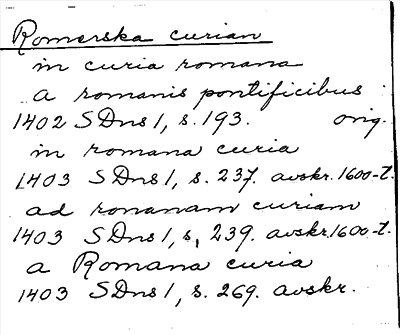 Romerska curian
in curia romana
a romanis pontificibus :
1402 SDns 1, s. 193. orig.
in romana curia
1403 SDns 1, s. 237. avskr. 1600-t.
ad romanam curiam
1403 SDns 1, s, 239. avskr. 1600-t.
a Romana curia
1403 SDns 1, s. 269. avskr.